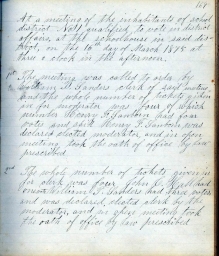 At a meeting of the inhabitants of school
district No. 1 qualified to vote in district
affairs, at the schoolhouse, in said dis-
trict, on the 16th day of March 1875 at
three o'clock in the afternoon.
1st The meeting was called to order by
William H. Sanders clerk of said district
and the whole number of tickets given
in for moderator was four of which
number Henry P. Sanborn had four
votes and said Henry P. Sanborn was
declared elected moderator and in open
meeting took the oath of office by law
prescribed.
2nd The whole number of tickets given in
for clerk was four John C.
one William H. Sanders had three votes
and was declared elected clerk by the
moderator, and in open meeting took
the oath of office by law prescribed